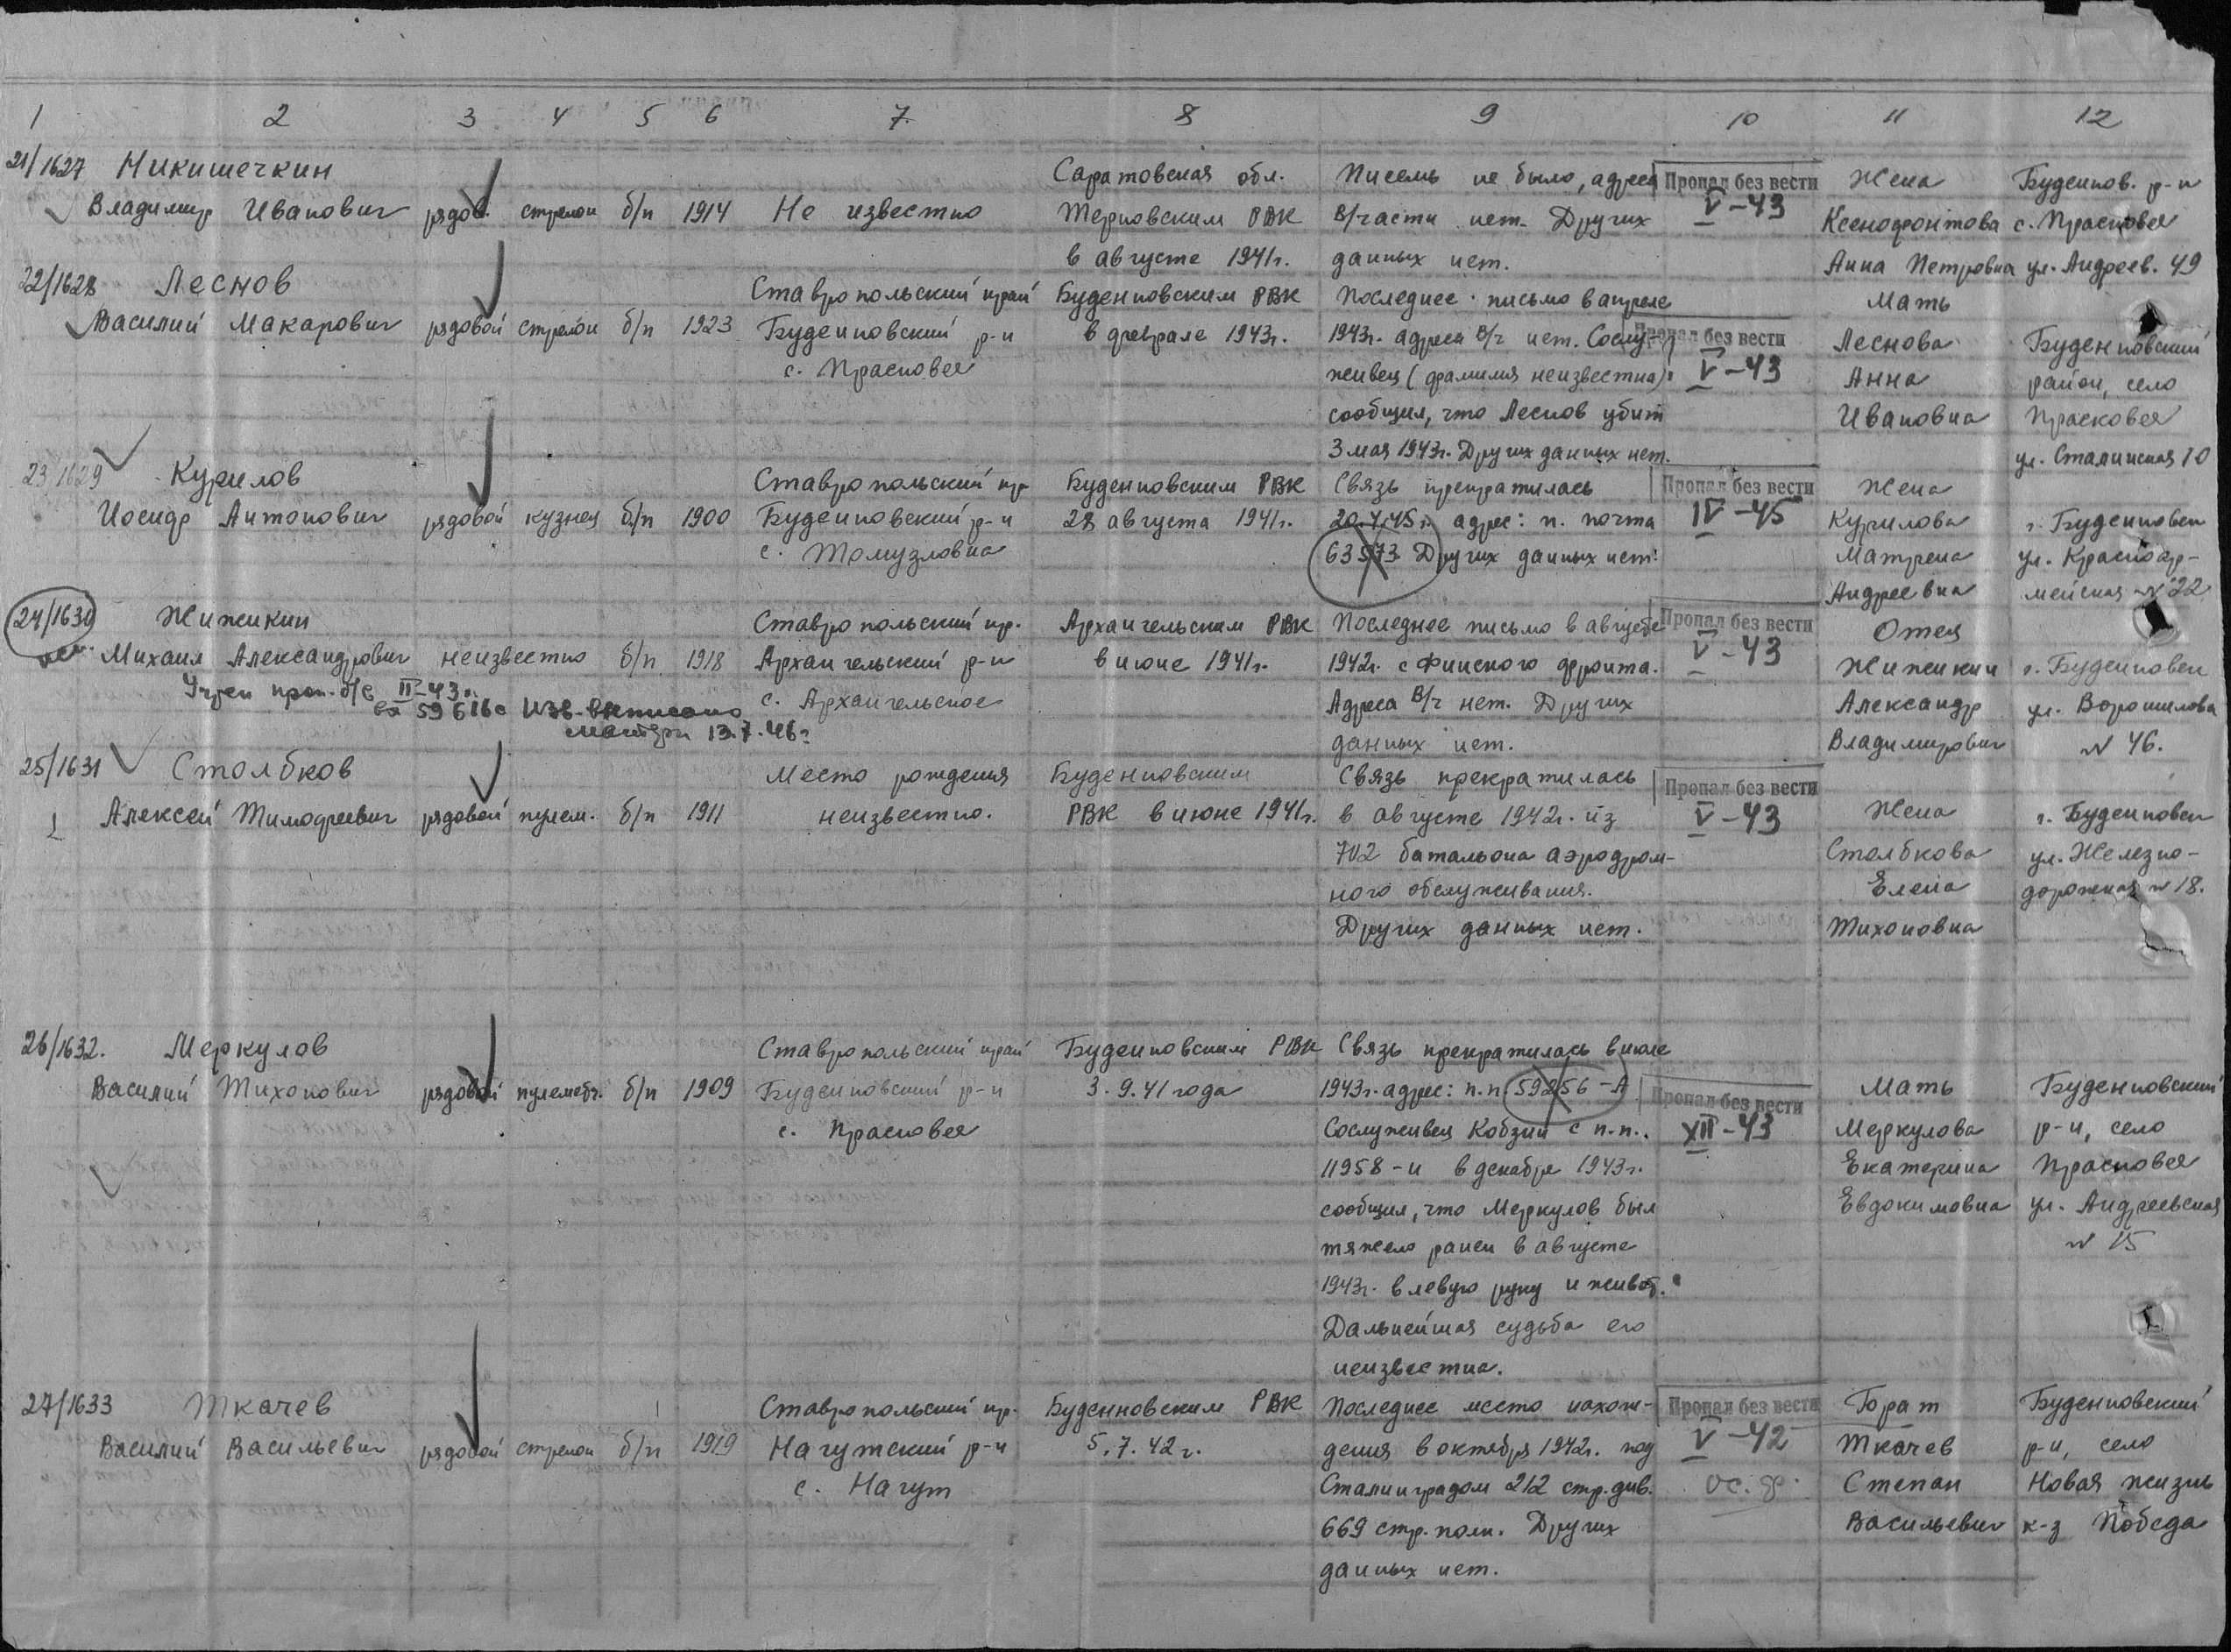 1 2 3 4 5 6 7 8 9 10 11 12
21/1627 Никишечкин
Владимир Иванович рядов. стрелок б/п 1914 Не известно
Саратовская обл.
Терновским РВК
в августе 1941г.
Писем не было, адреса
в/части нет. Других
данных нет.
Пропал без вести
V-43
Жена
Ксенофонтова
Анна Петровна
Буденнов. р-н
с. Прасковея
ул. Андреев. 49
22/1628 Леснов
Василий Макарович рядовой стрелок б/п 1923
Ставропольский край
Буденновский р-н
с. Прасковея
Буденновским РВК
в феврале 1943г.
Последнее письмо в апреле
1943г. адреса в/ч нет. Сослу-
живец (фамилия неизвестна)
сообщил, что Леснов убит
3 мая 1943г. Других данных нет.
Пропал без вести
V-43
Мать
Леснова
Анна
Ивановна
Буденновский
район, село
Прасковея
ул. Сталинская 10
23/1629 Курилов
Иосиф Антонович рядовой кузнец б/п 1900
Ставропольский кр
Буденновский р-н
с. Томузловка
Буденновским РВК
28 августа 1941г.
Связь прекратилась
20.1.45г. адрес: п. почта
63573 Других данных нет.
Пропал без вести
IV-45
Жена
Курилова
Матрена
Андреевна
г. Буденновск
ул. Красноар-
мейская №22
24/1630 Жижикин
Михаил Александрович неизвестно б/п 1918
Учтен проп. б/в II-43г.
вх 59616с Изв. выписано
матери 13.7.46г
Ставропольский кр.
Архангельский р-н
с. Архангельское
Архангельским РВК
в июне 1941г.
Последнее письмо в августе
1942г. с Финского фронта.
Адреса в/ч нет. Других
данных нет.
Пропал без вести
V-43
Отец
Жижикин
Александр
Владимирович
г. Буденновск
ул. Ворошилова
№ 46.
25/1631 Столбков
Алексей Тимофеевич рядовой пулем. б/п 1911
Место рождения
неизвестно.
Буденновским
РВК в июне 1941г.
Связь прекратилась
в августе 1942г. из
702 батальона аэродром-
ного обслуживания.
Других данных нет.
Пропал без вести
V-43
Жена
Столбкова
Елена
Тихоновна
г. Буденновск
ул. Железно-
дорожная №18.
26/1632. Меркулов
Василий Тихонович рядовой пулеметч. б/п 1909
Ставропольский край
Буденновский р-н
с. Прасковея
Буденновским РВК
3.9.41 года
Связь прекратилась в июле
1943г. адрес: п.п. 59256-А
Сослуживец Кобзий с п.п..
11958-и в декабре 1943г.
сообщил, что Меркулов был
тяжело ранен в августе
1943г. в левую руку и живот.
Дальнейшая судьба его
неизвестна.
Пропал без вести
XII-43
Мать
Меркулова
Екатерина
Евдокимовна
Буденновский
р-н, село
Прасковея
ул. Андреевская
№ 15
27/1633 Ткачев
Василий Васильевич рядовой стрелок б/п 1919
Ставропольский кр.
Нагутский р-н
с. Нагут
Буденновским РВК
5.7.42г.
Последнее место нахож-
дения в октябре 1942г. под
Сталинградом 212 стр. див.
669 стр. полк. Других
данных нет.
Пропал без вести
V-42
ос. ф.
Брат
Ткачев
Степан
Васильевич
Буденновский
р-н, село
Новая жизнь
к-з Победа